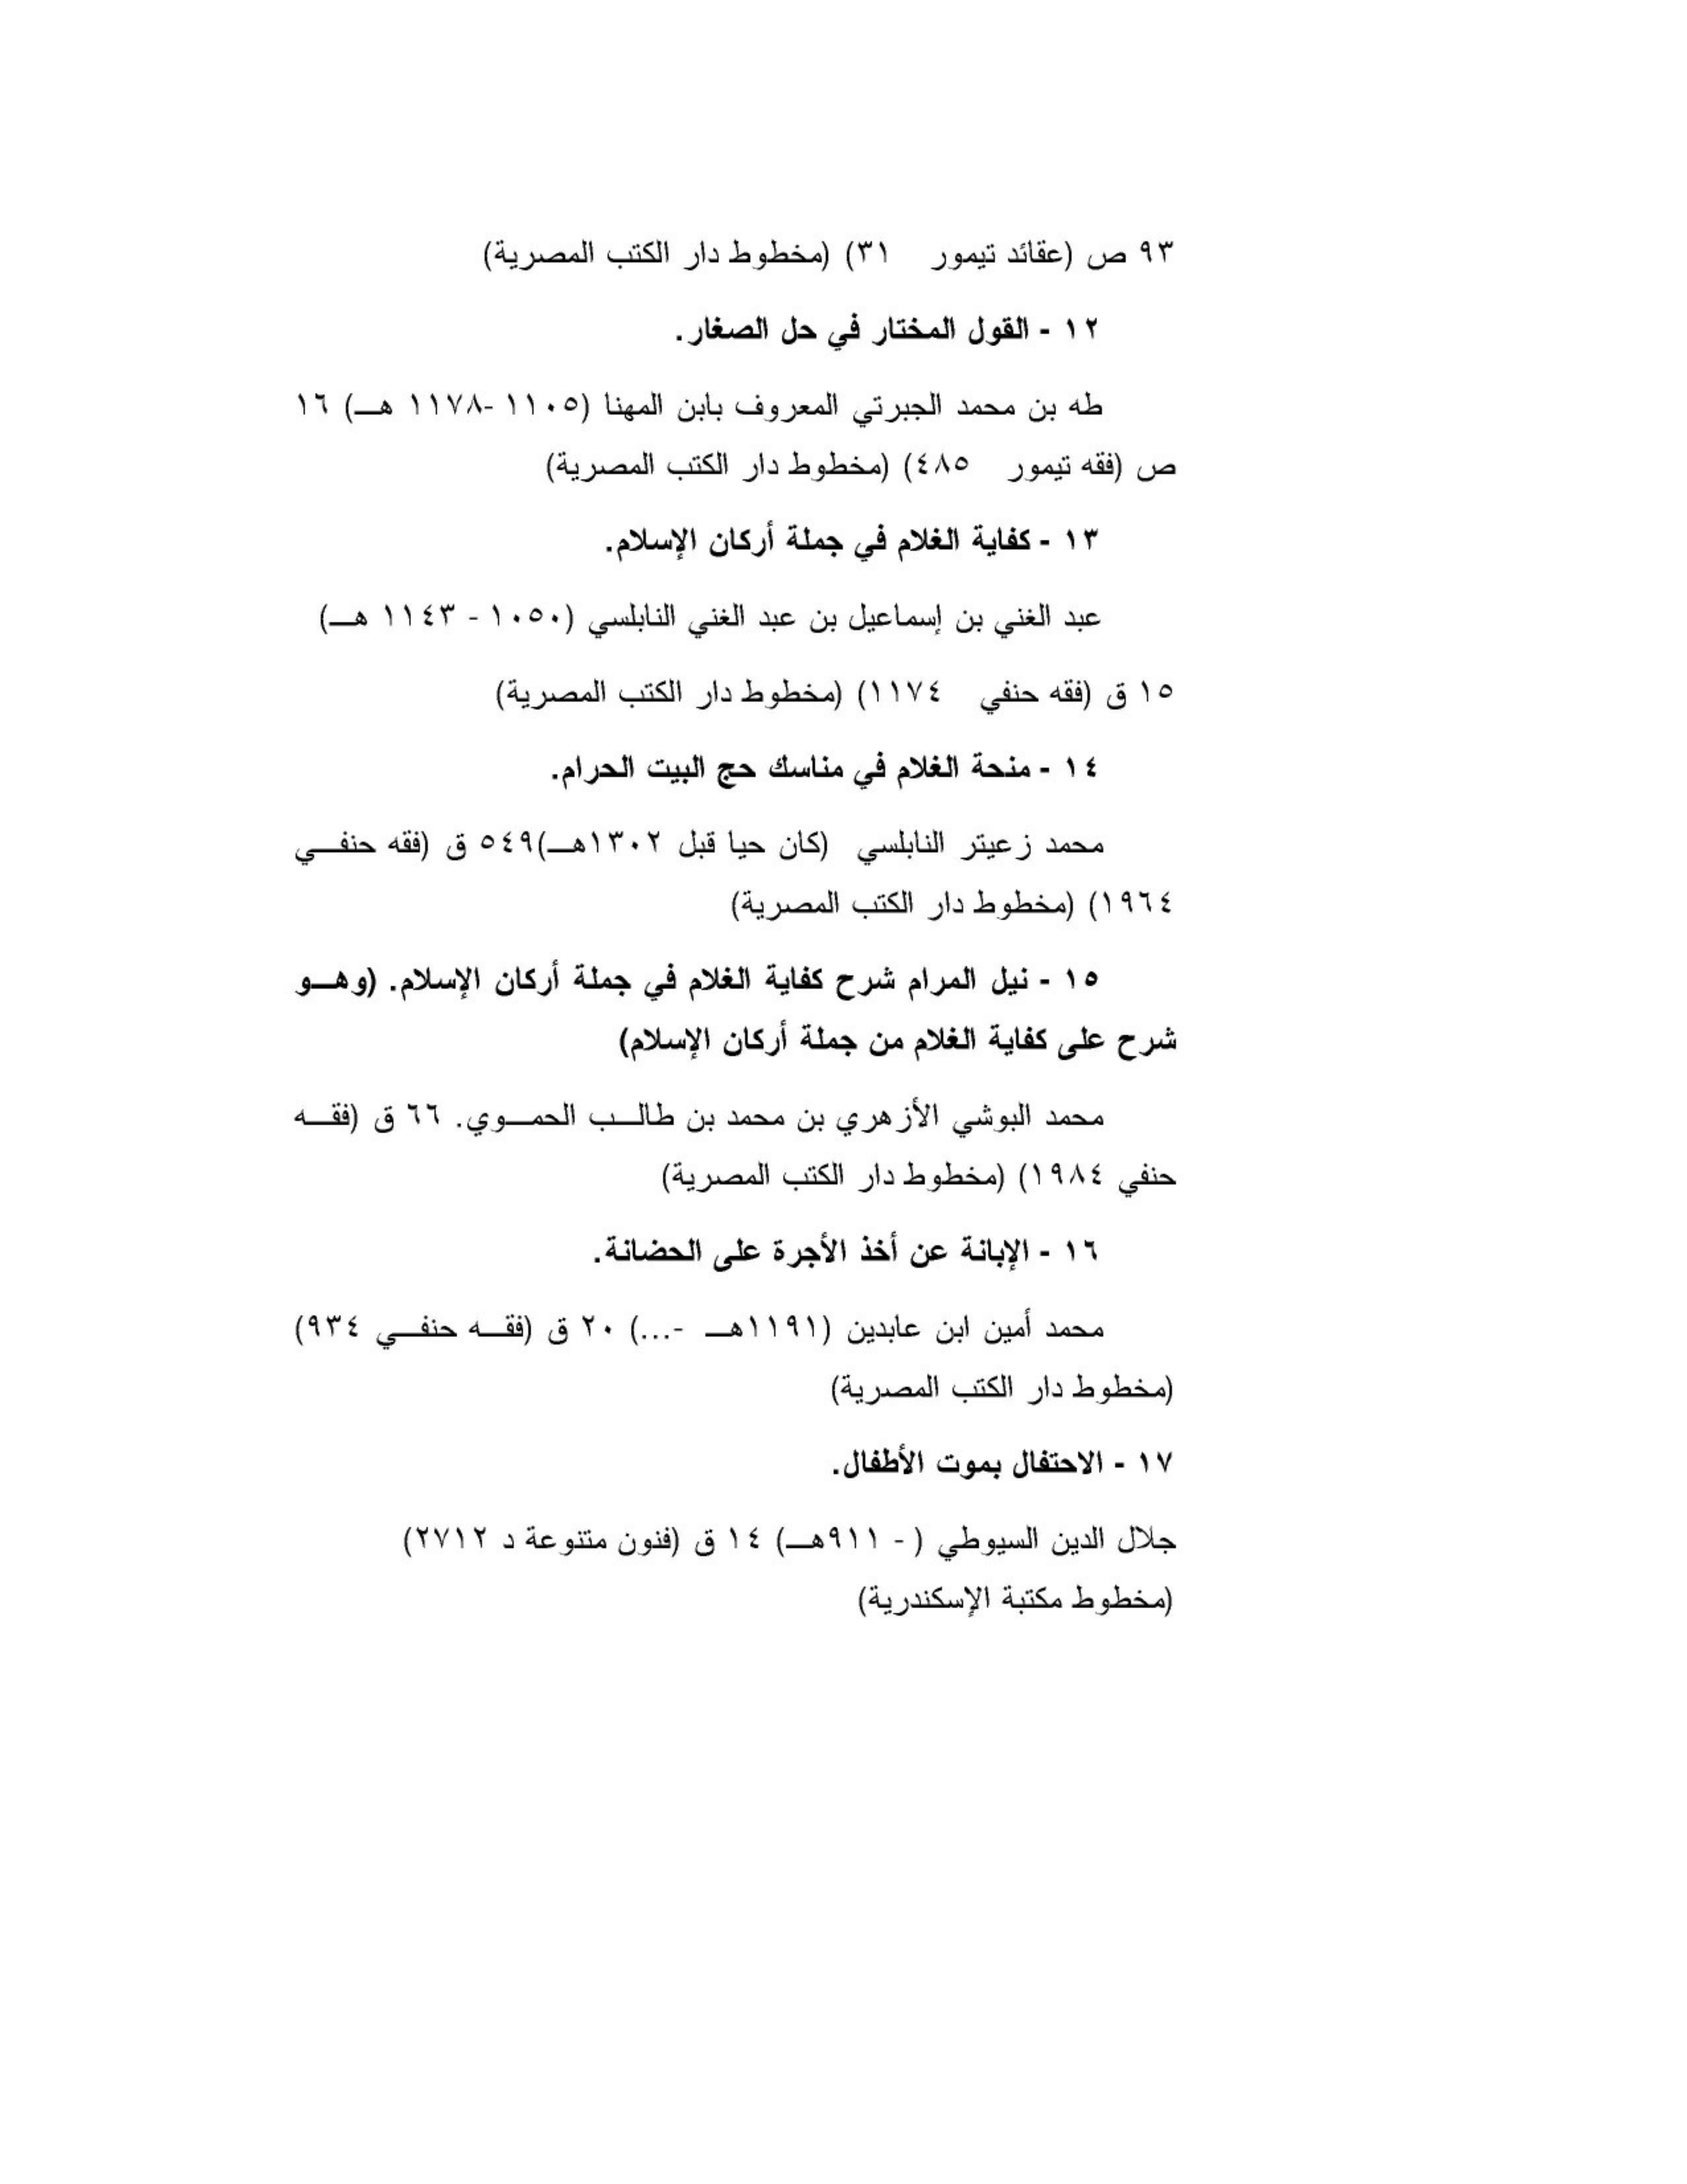 ٩٣ ص (عقائد تيمور ٣١) (مخطوط دار الكتب المصرية)
١٢ - القول المختار في حل الصغار.
طه بن محمد الجبرتي المعروف بابن المهنا (١١٠٥ -١١٧٨ هـ) ١٦
ص (فقه تيمور ٤٨٥) (مخطوط دار الكتب المصرية)
١٣ - كفاية الغلام في جملة أركان الإسلام.
عبد الغني بن إسماعيل بن عبد الغني النابلسي (١٠٥٠ - ١١٤٣ هـ)
١٥ ق (فقه حنفي ١١٧٤) (مخطوط دار الكتب المصرية)
١٤ - منحة الغلام في مناسك حج البيت الحرام.
محمد زعيتر النابلسي (كان حيا قبل ١٣٠٢هـ)٥٤٩ ق (فقه حنفـي
١٩٦٤) (مخطوط دار الكتب المصرية)
١٥ - نيل المرام شرح كفاية الغلام في جملة أركان الإسلام. (وهـو
شرح على كفاية الغلام من جملة أركان الإسلام)
محمد البوشي الأزهري بن محمد بن طالـب الحمـوي. ٦٦ ق (فقـه
حنفي ١٩٨٤) (مخطوط دار الكتب المصرية)
١٦ - الإبانة عن أخذ الأجرة على الحضانة.
محمد أمين ابن عابدين (١١٩١هـ -...) ٢٠ ق (فقـه حنفـي ٩٣٤)
(مخطوط دار الكتب المصرية)
١٧ - الاحتفال بموت الأطفال.
جلال الدين السيوطي ( - ٩١١هـ) ١٤ ق (فنون متنوعة د ٢٧١٢)
(مخطوط مكتبة الإسكندرية)